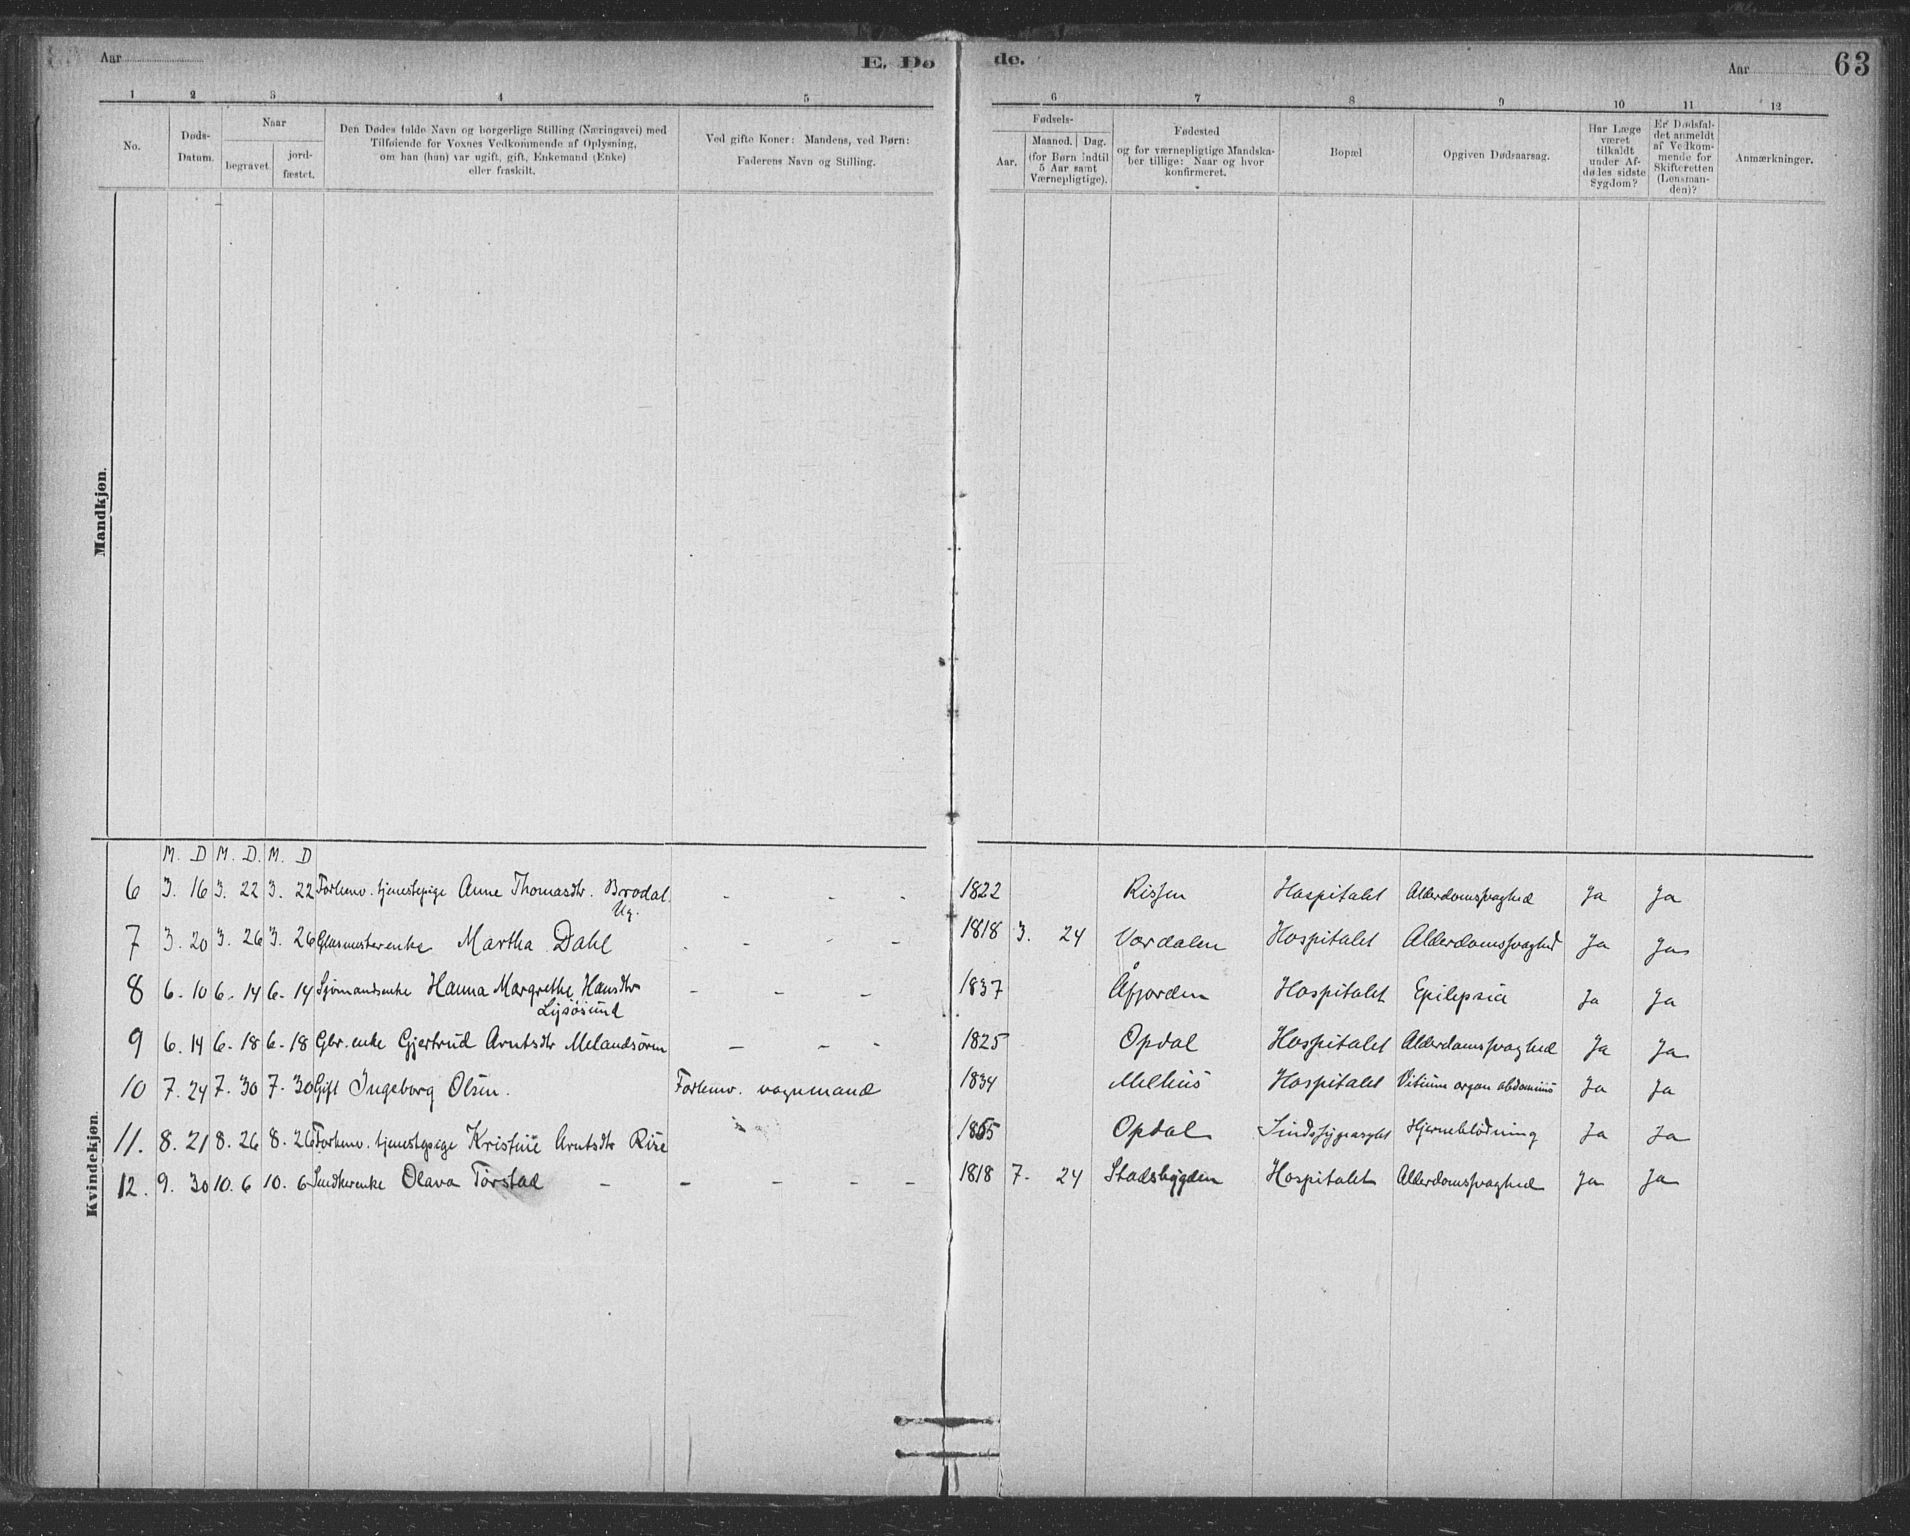 Aar
E. Dø
de.
Aar
63
1 2 3 4 5 6 7 8 9 10 11 12
No.
Døds-
Datum.
Naar
begravet.
jord-
fæstet.
Den Dødes fulde Navn og borgerlige Stilling (Næringsvei) med
Tilføiende for Voxnes Vedkommende af Oplysning,
om han (hun) var ugift, gift, Enkemand (Enke)
eller fraskilt.
Ved gifte Koner: Mandens, ved Børn:
Faderens Navn og Stilling.
Fødsels-
Aar.
Maaned. Dag.
(for Børn indtil
5 Aar samt
Værnepligtige).
Fødested
og for værnepligtige Mandska-
ber tillige: Naar og hvor
konfirmeret.
Bopæl
Opgiven Dødsaarsag.
Har Læge
været
tilkaldt
under Af-
dødes sidste
Sygdom?
Er Dødsfal-
det anmeldt
af Vedkom-
mende for
Skifteretten
(Lensman-
den)?
Anmærkninger.
Mandkjøn.
Kvindekjøn.
M. D M. D. M. D
6 3. 16 3. 22 3. 22 Forhenv. tjenestepige Anne Thomasdtr. Brodal. - - - 1822 Rissen Hospitalet Alderdomssvaghed Ja Ja
Ug.
7 3. 20 3. 26 3. 26 Glasmesterenke Martha Dahl - - - - 1818 3. 24 Værdalen Hospitalet Alderdomssvaghed Ja Ja
8 6. 10 6. 14 6. 14 Sjömandsenke Hanna Margrethe Hansdtr - - - 1837 Åfjorden Hospitalet Epilepsia Ja Ja
Lysösund
9 6. 14 6. 18 6. 18 Gbr. enke Gjertrud Arntsdtr Melandsören - - - 1825 Opdal Hospitalet Alderdomssvaghed Ja Ja
10 7. 24 7. 30 7. 30 Gift Ingeborg Olsen. Forhenv. vognmand 1834 Melhus Hospitalet Vitium organ abdominis Ja Ja
11. 8. 21 8. 26 8. 26 Forhenv. tjenestepige Kristine Arntsdtr Rise 1865 Opdal Sindssygeasylet Hjerneblödning Ja Ja
12. 9. 30 10. 6 10. 6 Snedkerenke Olava Törstad - - - - - 1818 7. 24 Stadsbygden Hospitalet Alderdomssvaghed Ja Ja